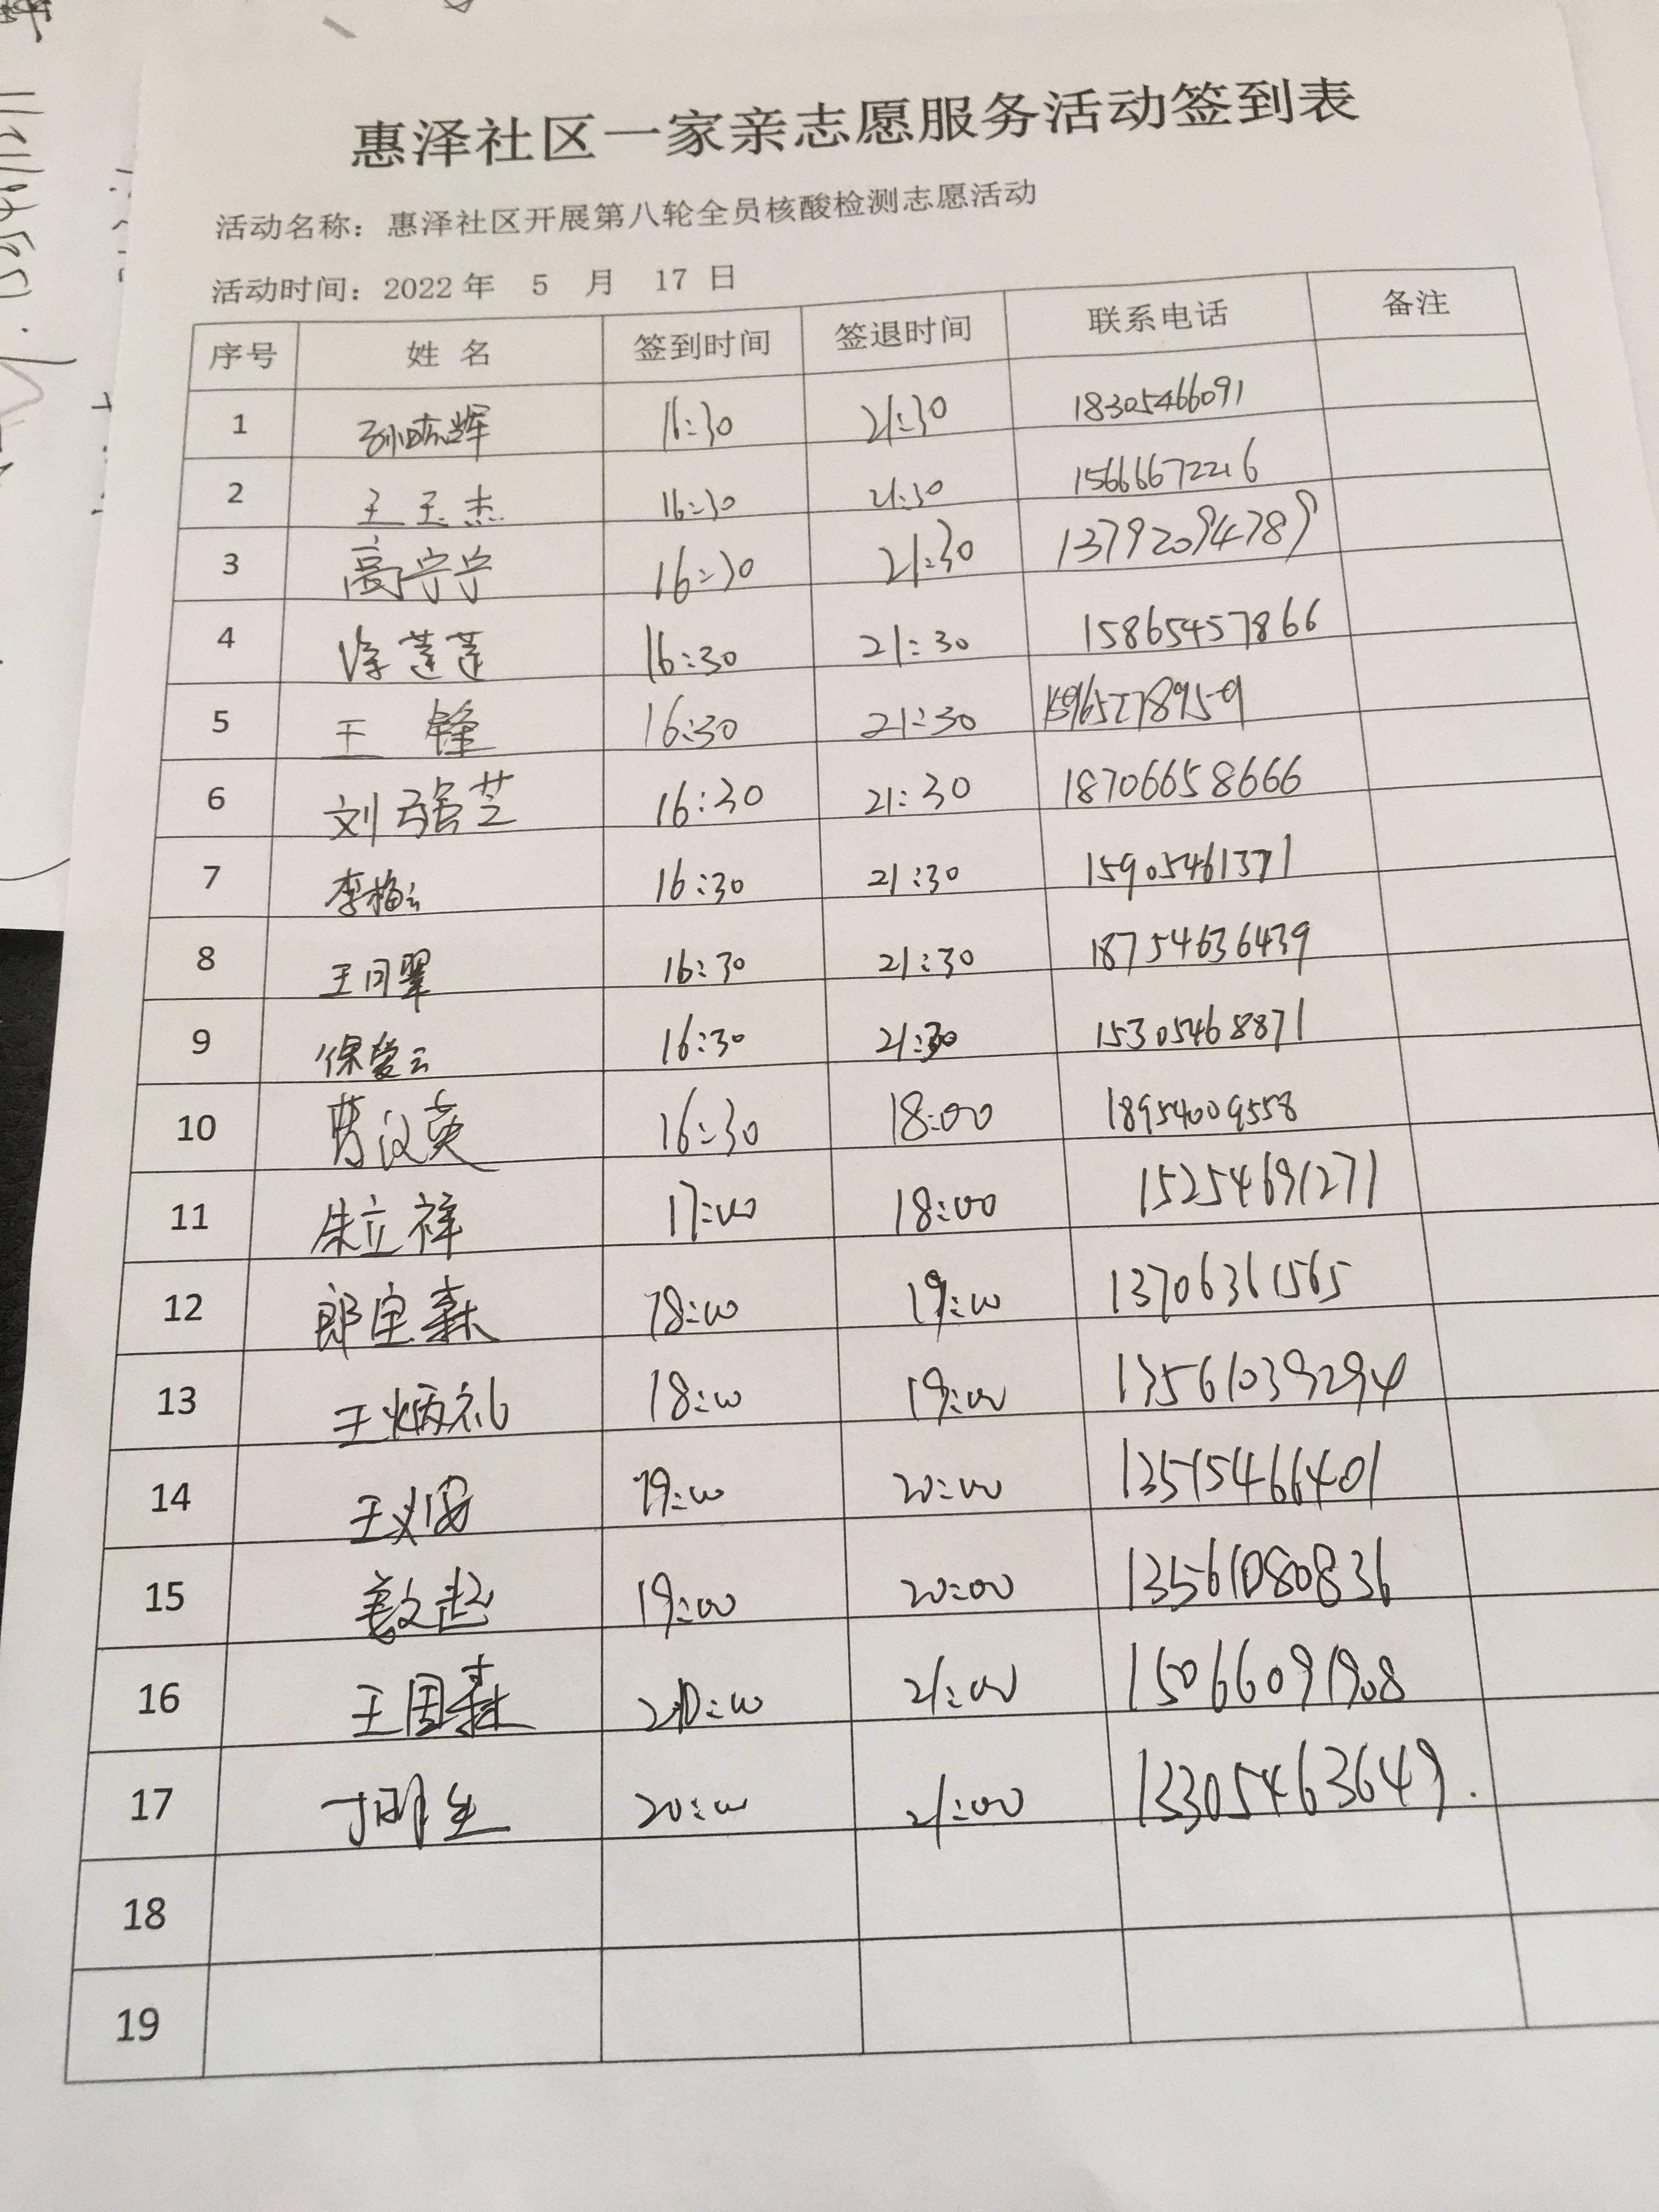 惠泽社区一家亲志愿服务活动签到表
活动名称：惠泽社区开展第八轮全员核酸检测志愿活动
活动时间：2022年 5 月 17 日
序号 姓 名 签到时间 签退时间 联系电话 备注
1 16:30 21:30 18305466091
2 王玉杰 16:30 21:30 15666672216
3 高宁宁 16:30 21:30 13792094789
4 徐莲莲 16:30 21:30 15865457866
5 王 锋 16:30 21:30
6 刘强芝 16:30 21:30 18706658666
7 李梅云 16:30 21:30 15905461371
8 王月翠 16:30 21:30 18754636439
9 16:30 21:30 15305468871
10 曹汉英 16:30 18:00 18954009558
11 朱立祥 17:00 18:00 15254691271
12 郎宝森 18:00 19:00 13706361565
13 王炳礼 18:00 19:00 13561039294
14 19:00 20:00 13515466401
15 19:00 20:00 13561080836
16 王国森 20:00 21:00 15066091908
17 丁明生 20:00 21:00 13305463649.
18
19